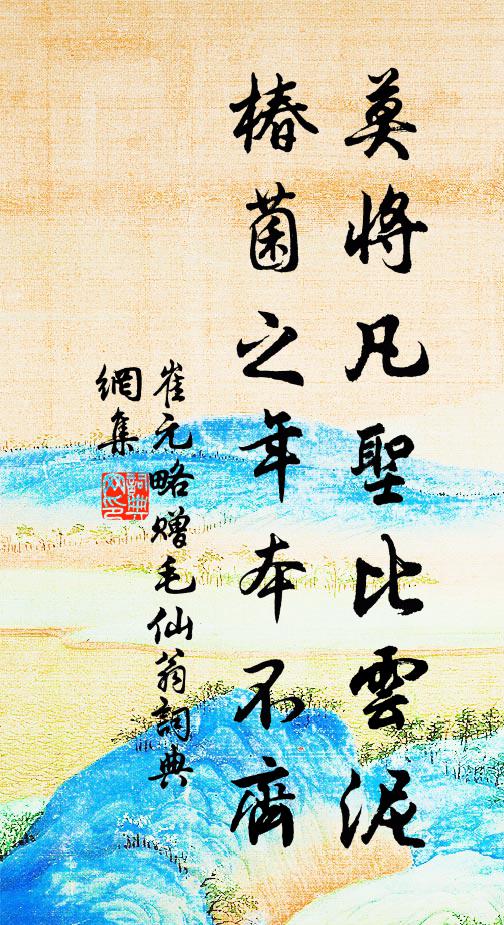 莫將凡聖比雲泥
椿菌之年本不齊
崔元略贈毛仙翁詞典
網集
詞典
網印